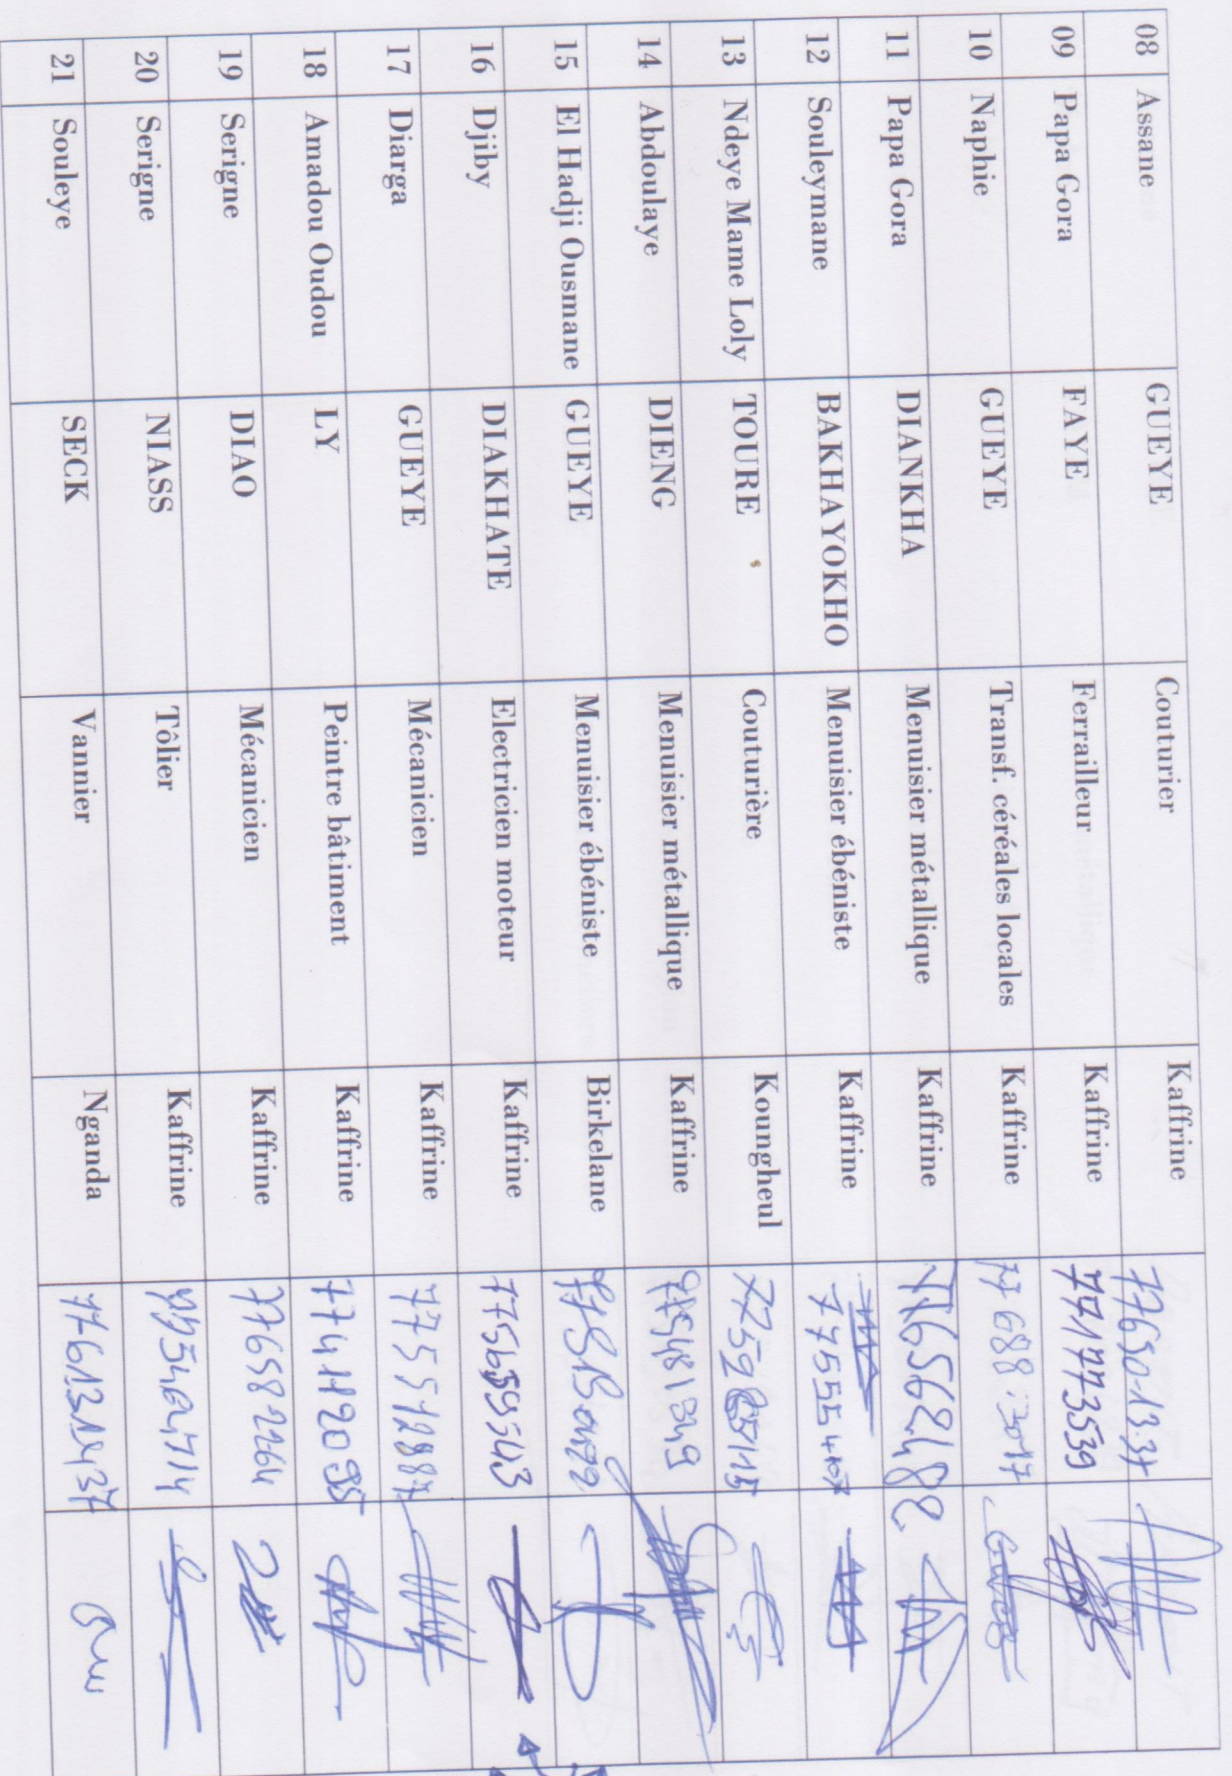 08 Assane GUEYE Couturier Kaffrine 77650.13.37
09 Papa Gora FAYE Ferrailleur Kaffrine 771773539
10 Naphie GUEYE Transf. céréales locales Kaffrine 77 688
11 Papa Gora DIANKHA Menuisier métallique Kaffrine 776568488
12 Souleymane BAKHAYOKHO Menuisier ébéniste Kaffrine
13 Ndeye Mame Loly TOURE Couturière Koungheul
14 Abdoulaye DIENG Menuisier métallique Kaffrine 775481349
15 El Hadji Ousmane GUEYE Menuisier ébéniste Birkelane
16 Djiby DIAKHATE Electricien moteur Kaffrine
17 Diarga GUEYE Mécanicien Kaffrine 775572887
18 Amadou Oudou LY Peintre bâtiment Kaffrine
19 Serigne DIAO Mécanicien Kaffrine 776582264
20 Serigne NIASS Tôlier Kaffrine
21 Souleye SECK Vannier Nganda